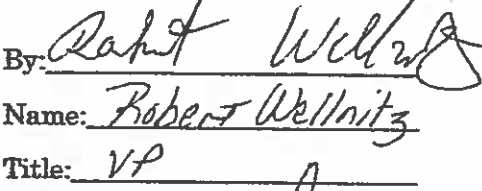 By: Robert Wellnitz
Name: Robert Wellnitz
Title: VP